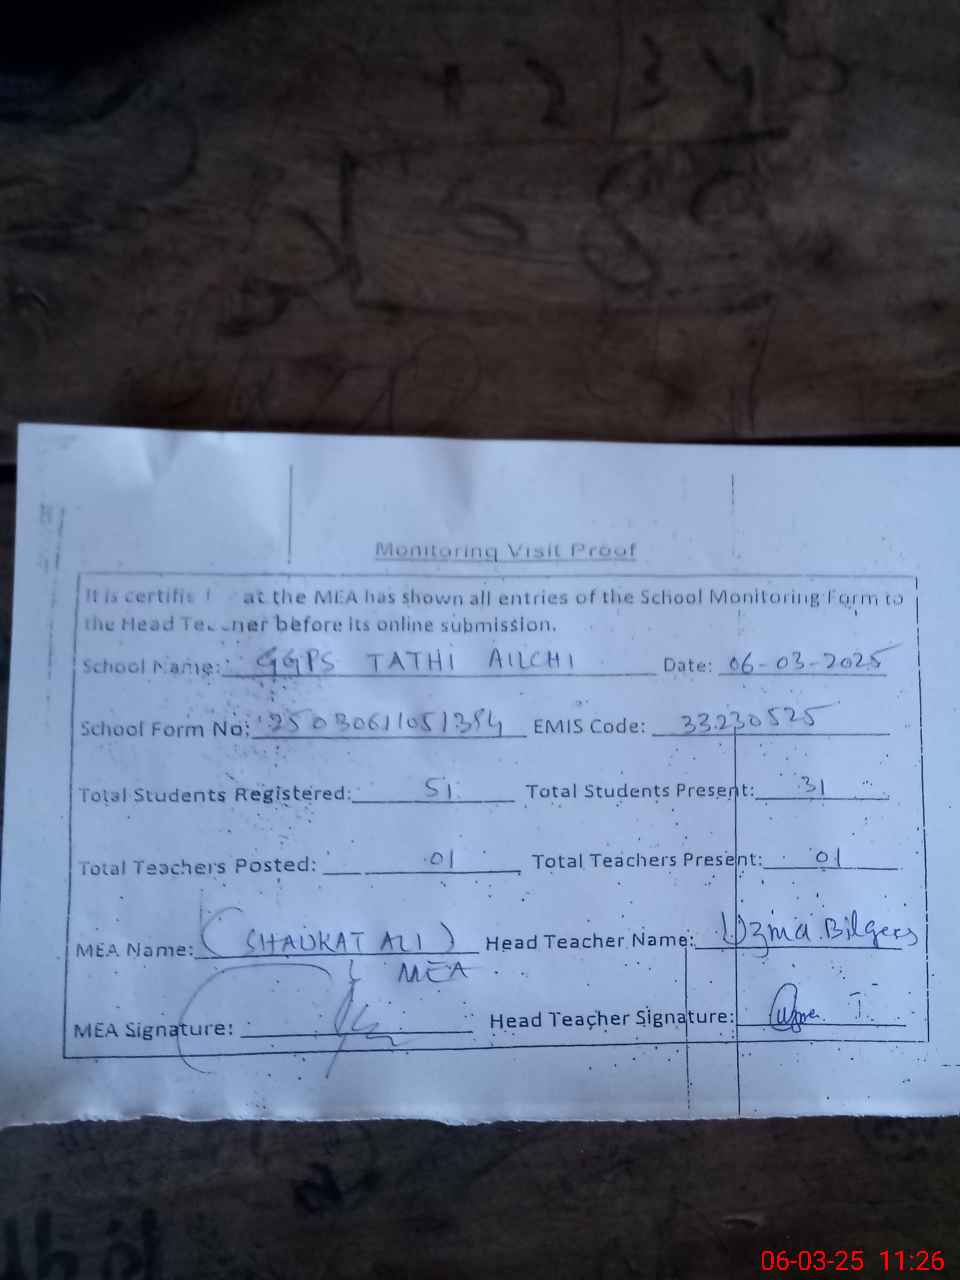 1 2 3 4 5
Monitoring Visit Proof
It is certifie at the MEA has shown all entries of the School Monitoring Form to
the Head Teacher before its online submission.
School Name: GGPS TATHI AILCHI Date: 06-03-2025
School Form No: 25030611051384 EMIS Code: 33230525
Total Students Registered: 51 Total Students Present: 31
Total Teachers Posted: 01 Total Teachers Present: 01
MEA Name: (SHAUKAT ALI) Head Teacher Name: Uzma Bilgees
MEA
MEA Signature: Head Teacher Signature:
06-03-25 11:26